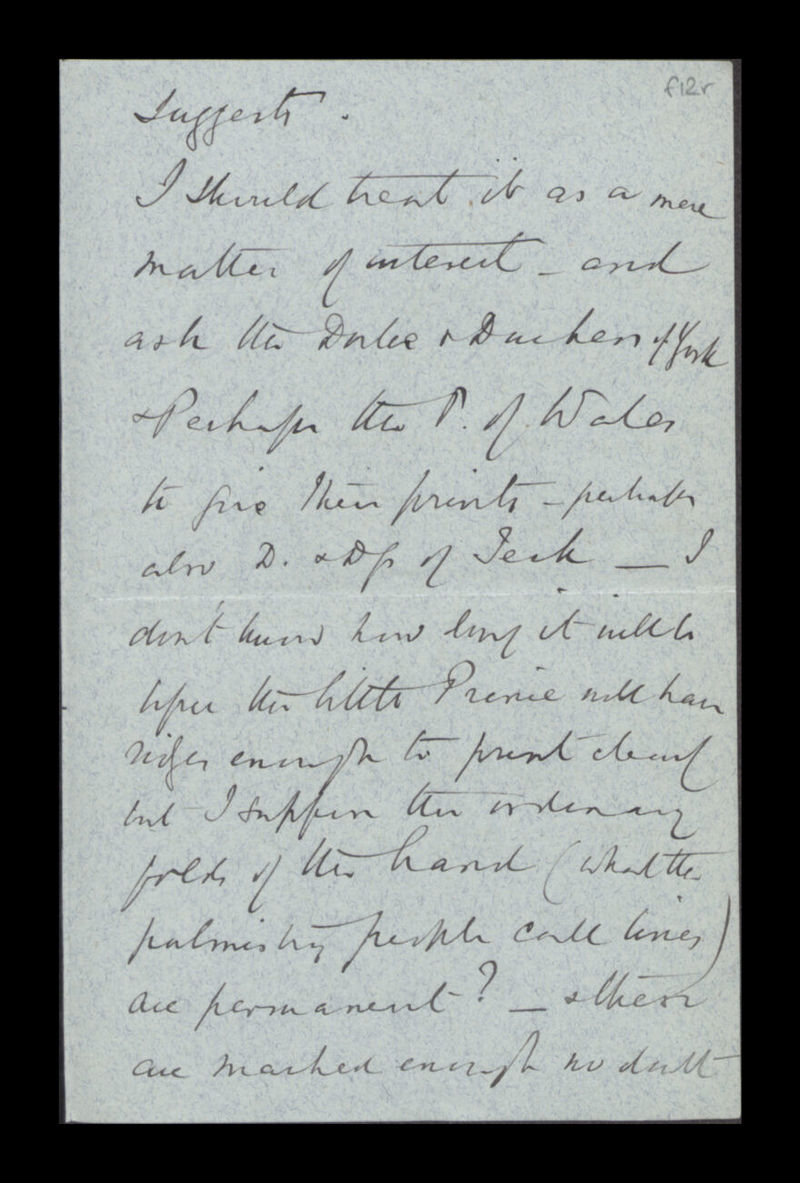 f12r
suggests.
I should treat it as a mere
matter of interest – and
ask the Duke & Duchess of York
& Perhaps the P. of Wales
to give their prints – perhaps
also D. & Dss of Teck — I
don't know how long it will be
before the little Prince will have
ridges enough to print clearly
but I suppose the ordinary
folds of the hand (what the
palmistry people call lines)
are permanent? — & these
are marked enough no doubt